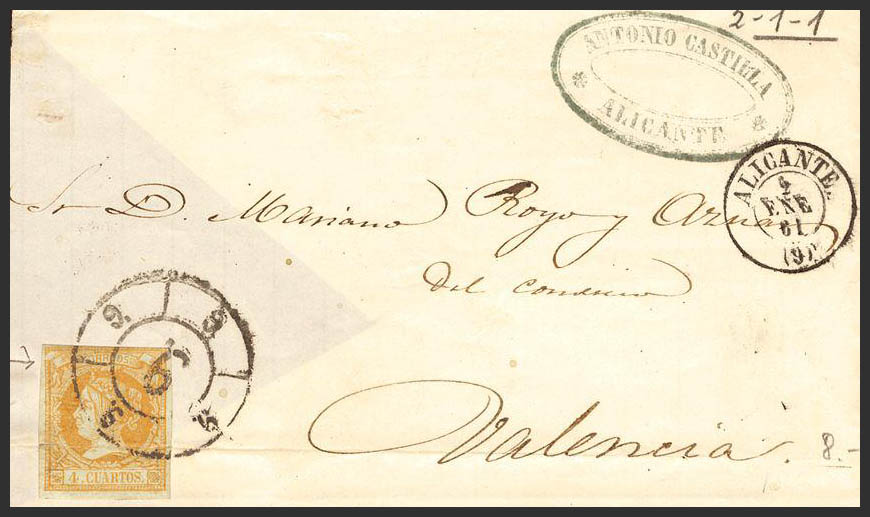 2-1-1
ANTONIO CASTILLA
ALICANTE
ALICANTE.
4
ENE
61
(9)
Sr D. Mariano Royo y Aznar
del comercio
Valencia.
8.-
CORREOS
4 CUARTOS